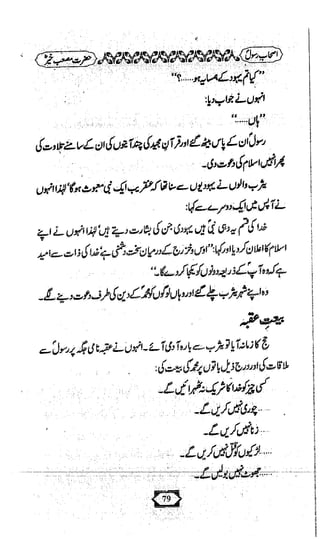 اصحاب رسولؐ
حضرت مصعب خیرؓ
"کیا تم یہود کے ہمسایہ ہو......؟"
انہوں نے جواب دیا:
"ہاں......"
رسولؐ ان کے پاس بیٹھ گئے اور قرآن مجید کی چند آیتوں کی ان کے سامنے تلاوت کی
پھر انہیں اسلام کی دعوت دی۔
یثرب والوں نے یہودیوں سے سنا تھا کہ عنقریب ایک نبی مبعوث ہوگا' لہٰذا انہوں
نے آپس میں ایک دوسرے سے کہا:
خدا کی قسم یہ وہی نبیؐ ہیں یہودی جن کی بشارت دیتے ہیں' لہٰذا انہوں نے اپنے
اسلام کا اعلان کر دیا اور کہا: "اوس و خزرج کے درمیان سخت دشمنی ہے' خدا کی ذات سے امید
ہے کہ وہ آپؐ کے ذریعہ دونوں کو یکجا کر دے گا۔"
وہ اپنے شہر یثرب چلے گئے اور وہاں لوگوں کو محمدؐ کے دین کی طرف دعوت دینے لگے۔
بیعت عقبہ
حج کا زمانہ آیا تو یثرب سے بارہ آدمی آئے۔ انہوں نے عقبہ نامی جگہ پر رسولؐ سے
ملاقات کی اور درج ذیل باتوں پر محمدؐ کی بیعت کی:
کسی چیز کو خدا کا شریک نہ ٹھہرائیں گے۔
......چوری نہیں کریں گے۔
......زنا نہیں کریں گے۔
......لڑکیوں کو قتل نہیں کریں گے۔
......جھوٹ نہیں بولیں گے۔
79